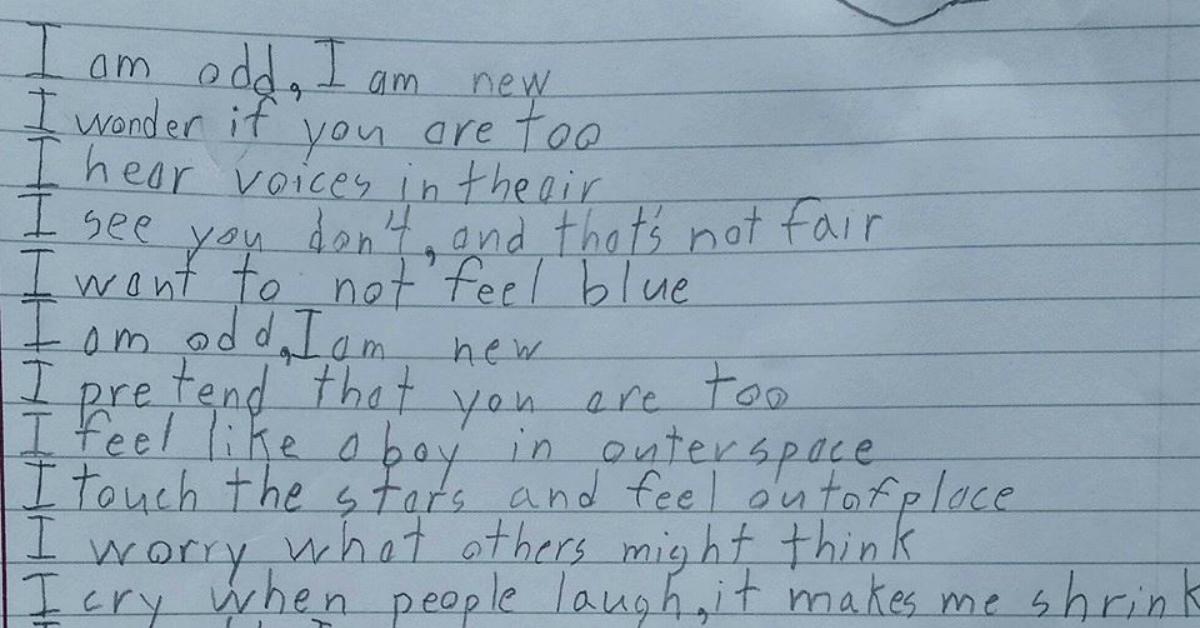 I am odd, I am new
I wonder if you are too
I hear voices in the air
I see you don't, and that's not fair
I want to not feel blue
I am odd, I am new
I pretend that you are too
I feel like a boy in outerspace
I touch the stars and feel out of place
I worry what others might think
I cry when people laugh, it makes me shrink